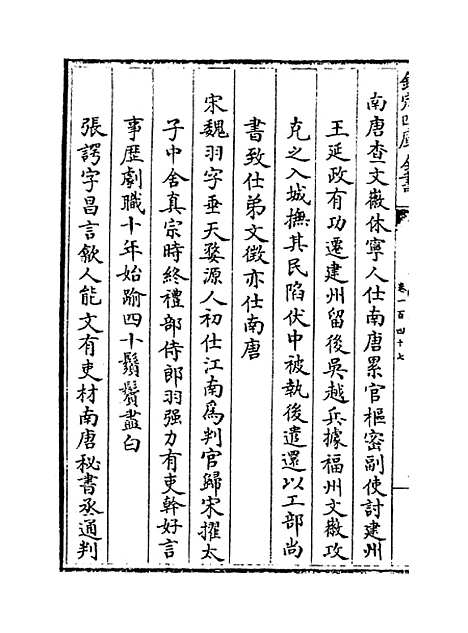 欽定四庫全書
卷一百四十七
南唐查文徽休寧人仕南唐累官樞密副使討建州
王延政有功遷建州留後吳越兵據福州文徽攻
克之入城撫其民陷伏中被執後遣還以工部尚
書致仕弟文徵亦仕南唐
宋魏羽字垂天婺源人初仕江南爲判官歸宋擢太
子中舍真宗時終禮部侍郎羽强力有吏幹好言
事歷劇職十年始踰四十鬚鬢盡白
張諤字昌言歙人能文有吏材南唐秘書丞通判